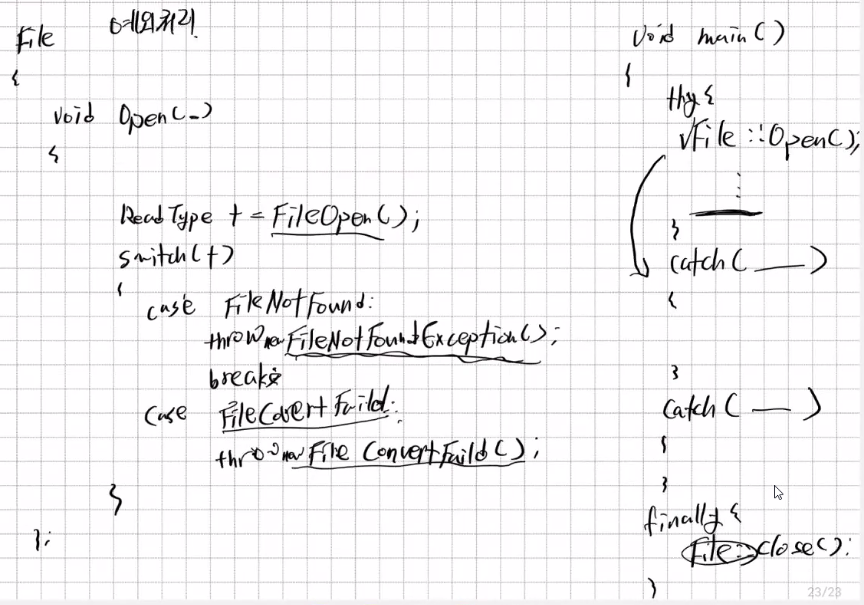 예외처리
File
{
void Open(_)
{
ReadType t = FileOpen();
switch(t)
{
case FileNotFound:
throw new FileNotFoundException();
break;
case FileCovertFaild:
throw new File ConvertFaild();
}
};
void main()
{
try{
File::Open();
}
catch( ___ )
{
}
catch( ___ )
{
}
finally{
File::close();
}
23/23